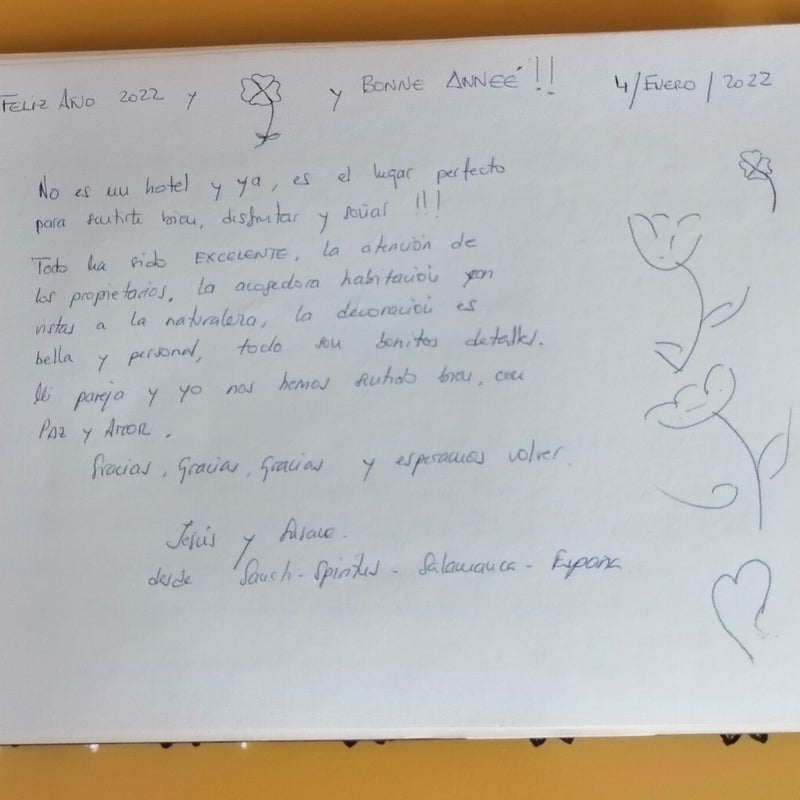 FELIZ AÑO 2022 y y BONNE ANNEÉ!! 4/ENERO/2022
No es un hotel y ya, es el lugar perfecto
para sentirte bien, disfrutar y soñar !!!
Todo ha sido EXCELENTE, la atención de
los propietarios, la acogedora habitación con
vistas a la naturaleza, la decoración es
bella y personal, todo son bonitos detalles.
Mi pareja y yo nos hemos sentido bien, con
PAZ y AMOR.
Gracias, Gracias, Gracias y esperamos volver.
Jesús y
desde - Salamanca - España